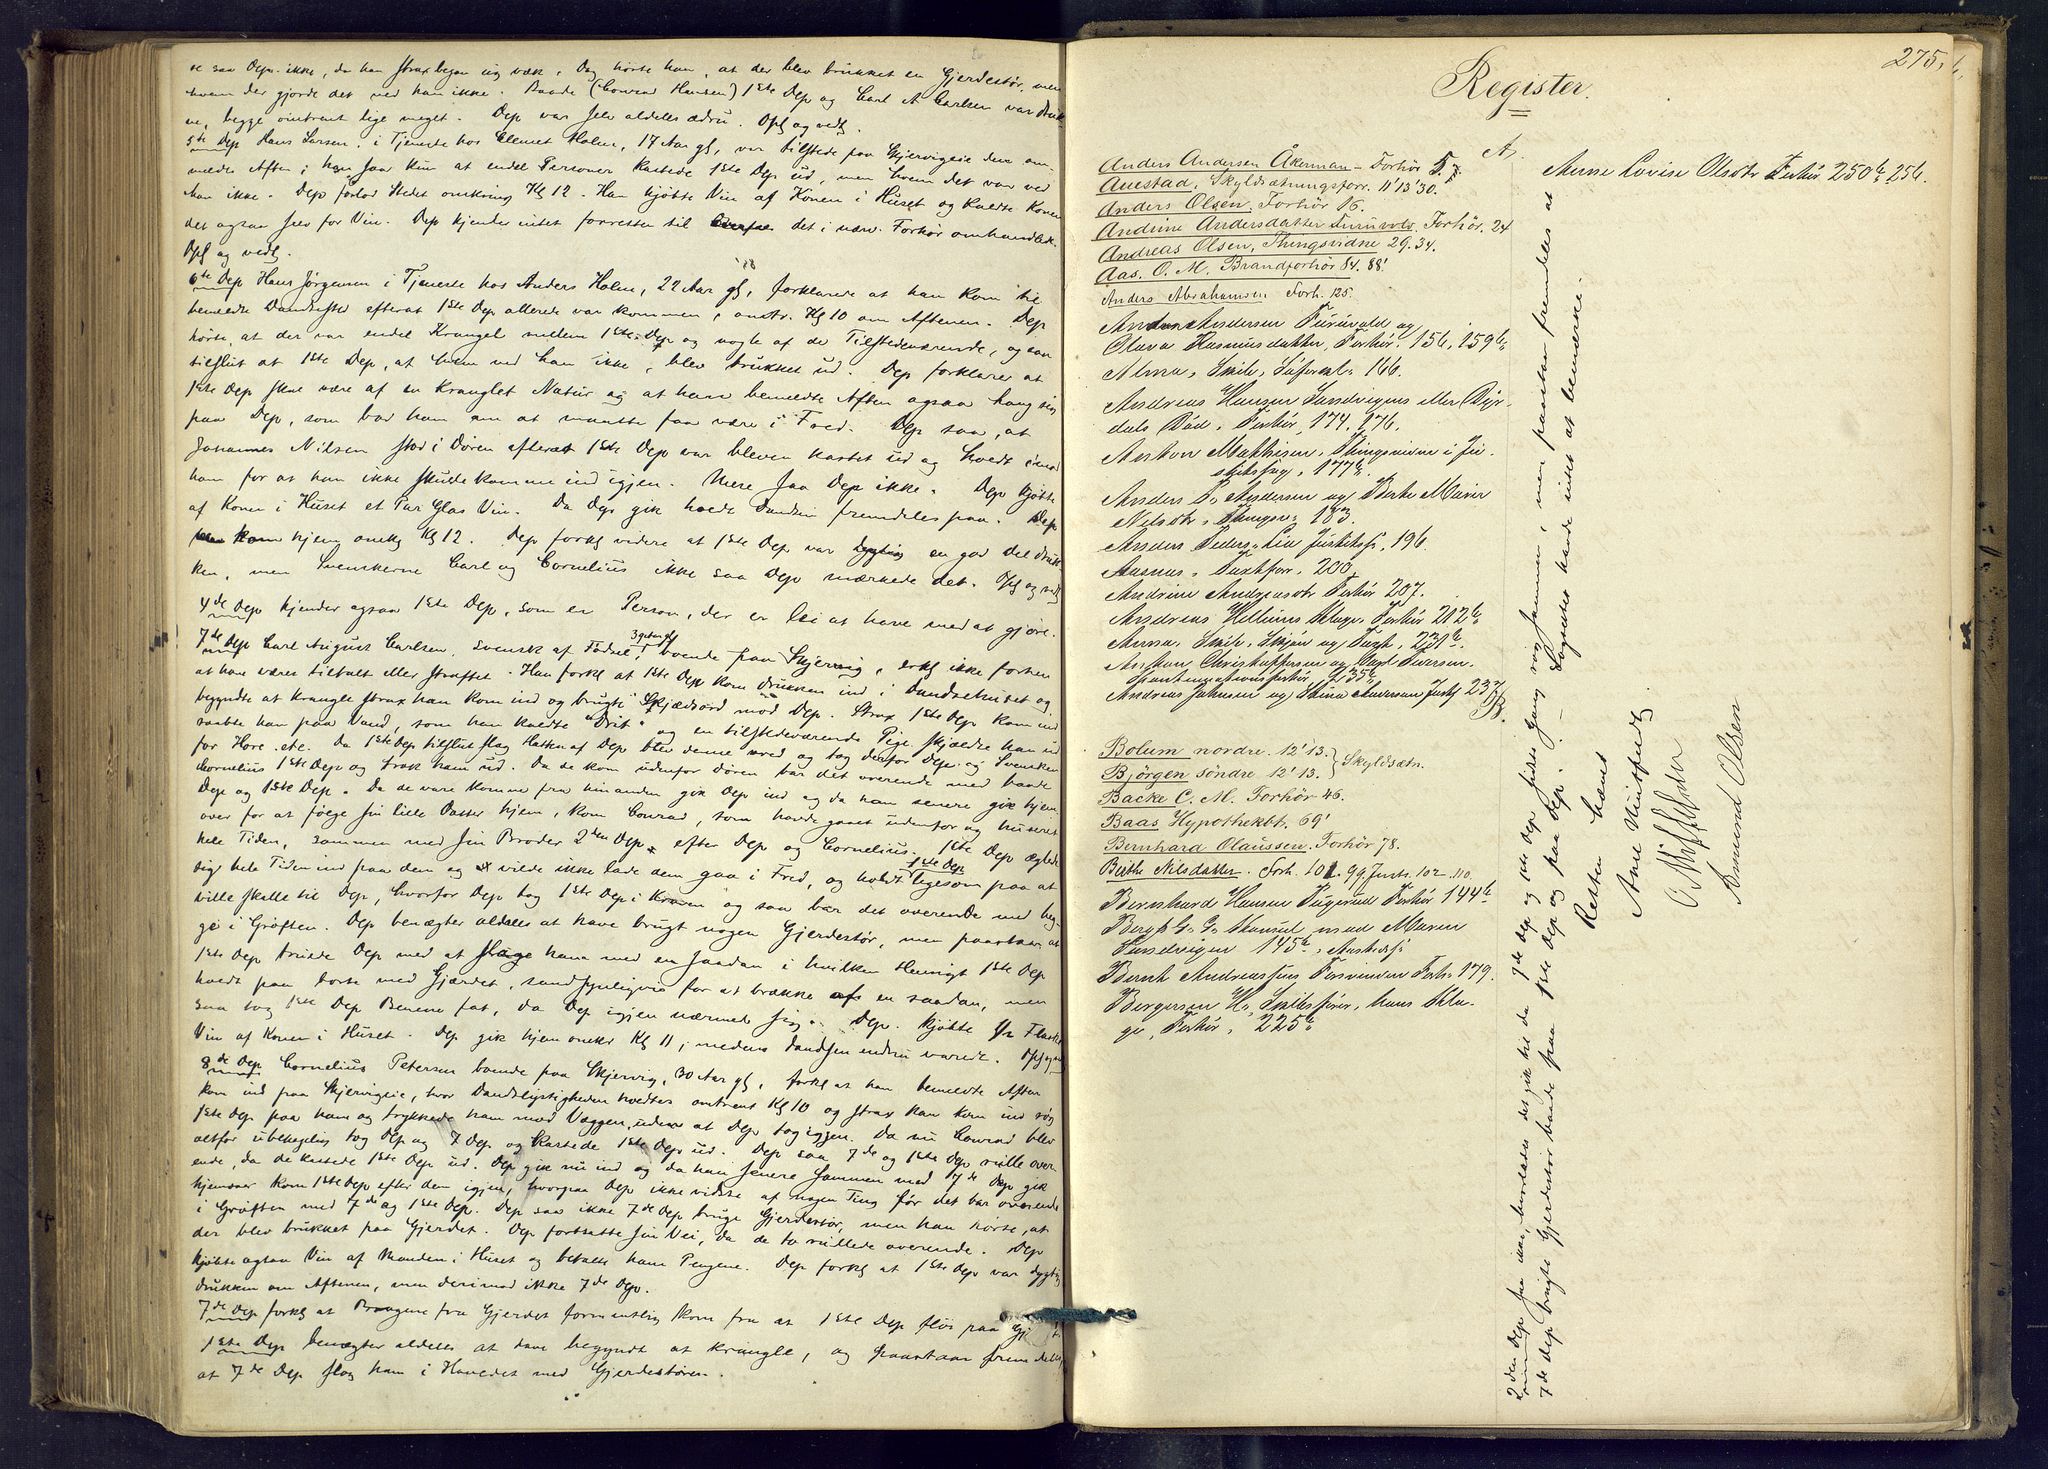 se saa Dep. ikke, da han strax begav sig væk. Dog hørte han, at der blev brukket en Gjerdestør, men
hvem der gjorde det ved han ikke. Baade (Conrad Hansen) 1ste Dep og Carl A Carlsen var druk-
ne, begge omtrent lige meget. Dep var selv aldeles ædru. Opl og vedt.
5te Dep Hans Larsen, i Tjeneste hos Clemet Holm, 17 Aar gl, var tilstede paa Skjervigeie den om-
meldte Aften; han saa kun at endel Personer kastede 1ste Dep ud, men hvem det var ved
han ikke. Dep forlod Stedet omkring Kl 12. Han kjøbte Vin af Konen i Huset og kaldte Konen
det ogsaa selv for Vin. Dep kjender intet forresten til det i nærv. Forhør omhandlede.
Opl og vedt.
6te Dep Hans Jørgensen i Tjeneste hos Anders Holm, 22 Aar gl, forklarede at han kom til
bemeldte Dandsested efterat 1ste Dep allerede var kommen, omtr. Kl 10 om Aftenen. Dep
hørte, at der var endel Krangel mellem 1ste Dep og nogle af de Tilstedeværende, og saa
tilslut at 1ste Dep, af hvem ved han ikke, blev trukket ud. Dep forklarer at
1ste Dep skal være af en kranglet Natur og at han bemeldte Aften ogsaa hang sig
paa Dep, som bad ham om at maatte faa være i Fred. Dep saa, at
Johannes Nilsen stod i Døren efterat 1ste Dep var bleven kastet ud og hvedt imod
ham for at han ikke skulde komme ind igjen. Mere saa Dep ikke. Dep kjøbte
af Konen i Huset et Par Glas Vin. Da Dep gik havde Dandsen fremdeles paa. Dep
kom hjem omkr Kl 12. Dep forkl videre at 1ste Dep var dygtig en god Del druk-
ken, men Svenskerne Carl og Cornelius ikke saa Dep mærkede det. Opl og vedt
4de Dep kjender ogsaa 1ste Dep, som en Person, der er lei at have med at gjøre.
7de Dep Carl August Carlsen, svensk af Fødsel, 39 Aar gl boende paa Skjervig, erkl ikke forhen
at have været tiltalt eller straffet. Han forkl at 1ste Dep kom drukken ind i Dandsehuset og
begyndte at krangle strax han kom ind og brugte Skjældsord mod Dep. Strax 1ste Dep kom ind
raabte han paa Vand, som han kaldte "Drit" og en tilstedeværende Pige skjældte han ud
for Hore etc. Da 1ste Dep tilslut slog Hatten af Dep blev denne vred og tog derfor Dep og Svensken
Cornelius 1ste Dep og trak ham ud. Da de kom udenfor Døren bar det overende med baade
Dep og 1ste Dep. Da de vare komne fra hinanden gik Dep ind og da han senere gik hjem
over for at følge sin lille Datter hjem, kom Conrad, som havde gaaet udenfor og huseret
hele Tiden, sammen med sin Broder 2den Dep efter Dep og Cornelius. 1ste Dep æglede
sig hele Tiden ind paa dem og vilde ikke lade dem gaa i Fred, og holdt 1ste Dep ligesom paa at
ville skalle til Dep, hvorfor Dep tog 1ste Dep i Kraven og saa bar det overende med beg-
ge i Grøften. Dep benægter aldeles at have brugt nogen Gjerdestør, men paastaar at
1ste Dep truede Dep med at slage ham med en saadan i hvilken Hensigt 1ste Dep
holdt paa borte med Gjærdet, sandsynligvis for at brække af en saadan, men
saa tog 1ste Dep Benene fat, da Dep igjen nærmet sig. Dep. kjøbte 1/2 Flaske
Vin af Konen i Huset. Dep gik hjem omkr Kl 11, medens Dandsen endnu varede. Opl og vedt
8de Dep Cornelius Petersen boende paa Skjervig, 30 Aar gl, forkl at han bemeldte Aften
kom ind paa Skjervigeie, hvor Dandselystigheden holdtes omtrent Kl 10 og strax han kom ind røg
1ste Dep paa ham og trykkede ham mod Væggen, uden at Dep tog igjen. Da nu Conrad blev
altfor ubehagelig tog Dep og 7 Dep og kastede 1ste Dep ud. Dep saa 7de og 1ste Dep rulle over-
ende, da de kastede 1ste Dep ud. Dep gik nu ind og da han senere sammen med 7de Dep gik
hjemover kom 1ste Dep efter dem igjen, hvorpaa Dep ikke vidste af nogen Ting før det bar overende
i Grøften med 7de og 1ste Dep. Dep saa ikke 7de Dep bruge Gjerdestør, men han hørte, at
der blev brukket paa Gjerdet. Dep fortsatte sin Vei, da de to rullede overende. Dep
kjøbte ogsaa Vin af Manden i Huset og betalte ham Pengene. Dep forkl at 1ste Dep var dygtig
drukken om Aftenen, men derimod ikke 7de Dep.
7de Dep forkl at Bragene fra Gjerdet formentlig kom fra at 1ste Dep fløi paa
1ste Dep benægter aldeles at have begyndt at krangle, og paastaar fremdeles
at 7de Dep slog ham i Hovedet med Gjerdestøren.
275.
Register.
A.
Anders Andersen Åkerman - Forhör 5.7
Auestad, Skyldsætningsforr. 11'13'30.
Anders Olsen, Forhör 16.
Andrine Andersdatter Furuvold, Forhör. 24
Andreas Olsen, Thingsvidne 29.34.
Aas. O. M. Brandforhör 84. 88'
Anders Abrahamsen Forh. 125.
Anders Andersen Furuvald og
Olava Rasmusdatter, Forhör. 156, 159b
Alma, Skib, Söforkl. 166.
Andreas Hansen Sandvigens eller Dyr-
dals Död, Forhör, 174, 176.
Anton Mathisen, Thingsvidne i Ju-
stitssag, 177b
Anders P. Andersen og Berte Marie
Nilsdtr. Thingsv. 183.
Anders Peders. Lia Justitss. 196.
Rasmus, Taxtforr. 200.
Andrine Andreasdtr Forhör 207.
Andreas Hellums Klage, Forhör 212b
Anna, Skib, Skjön og Taxt. 221b
Anton Christoffersen og Carl Iversen.
Konfrontationsforhör 235b
Andreas Johnsen og Stina Andersen Justs 237b
B.
Bolum nordre. 12'13.
Björgen söndre 12'.13. } Skyldsætn.
Backe C. M. Forhör 46.
Baas Hypothekbt. 69'
Bernhard Olaussen. Forhör 78.
Berthe Nilsdatter. Forh. 101. 99 Justs. 102. 110.
Bernhard Hansen Fugerud Forhör 144b
Bergh G. G. Konsul mod Maren
Sandvigen 145b, Austsf.
Bernt Andreassens Forsvinden Forh. 179.
Bergersen H. Skibsförer, hans Kla-
ge, Forhör, 225b
Anne Lovise Olsdtr Forhör 250b 256.
2den Dep saa intet, hvordan det gik til da 7de Dep og 1ste Dep første Gang røg sammen, men paastaar fremdeles at
7de Dep brugte Gjerdestør baade paa 1ste Dep og paa Dep. - Lagrettet havde intet at bemærke. -
Retten hævet
Asmund Olsen